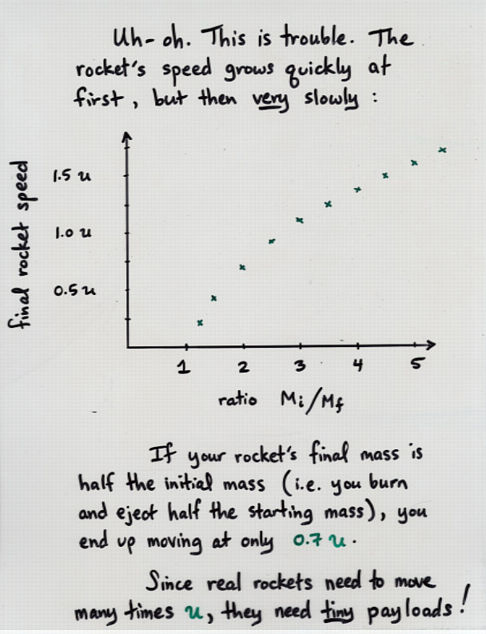 Uh-oh. This is trouble. The
rocket's speed grows quickly at
first, but then very slowly:
final rocket speed
1.5 u
1.0 u
0.5 u
1 2 3 4 5
ratio Mi/Mf
If your rocket's final mass is
half the initial mass (i.e. you burn
and eject half the starting mass), you
end up moving at only 0.7 u.
Since real rockets need to move
many times u, they need tiny payloads!